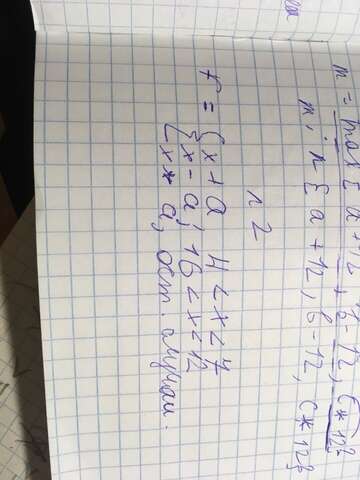 m = max { a + 12, b - 12, c * 12 }
min { a + 12, b - 12, c * 12 }
n 2
f = { x + a 4 < x < 7
x - a, 16 < x < 12
x * a, ост. случаи.